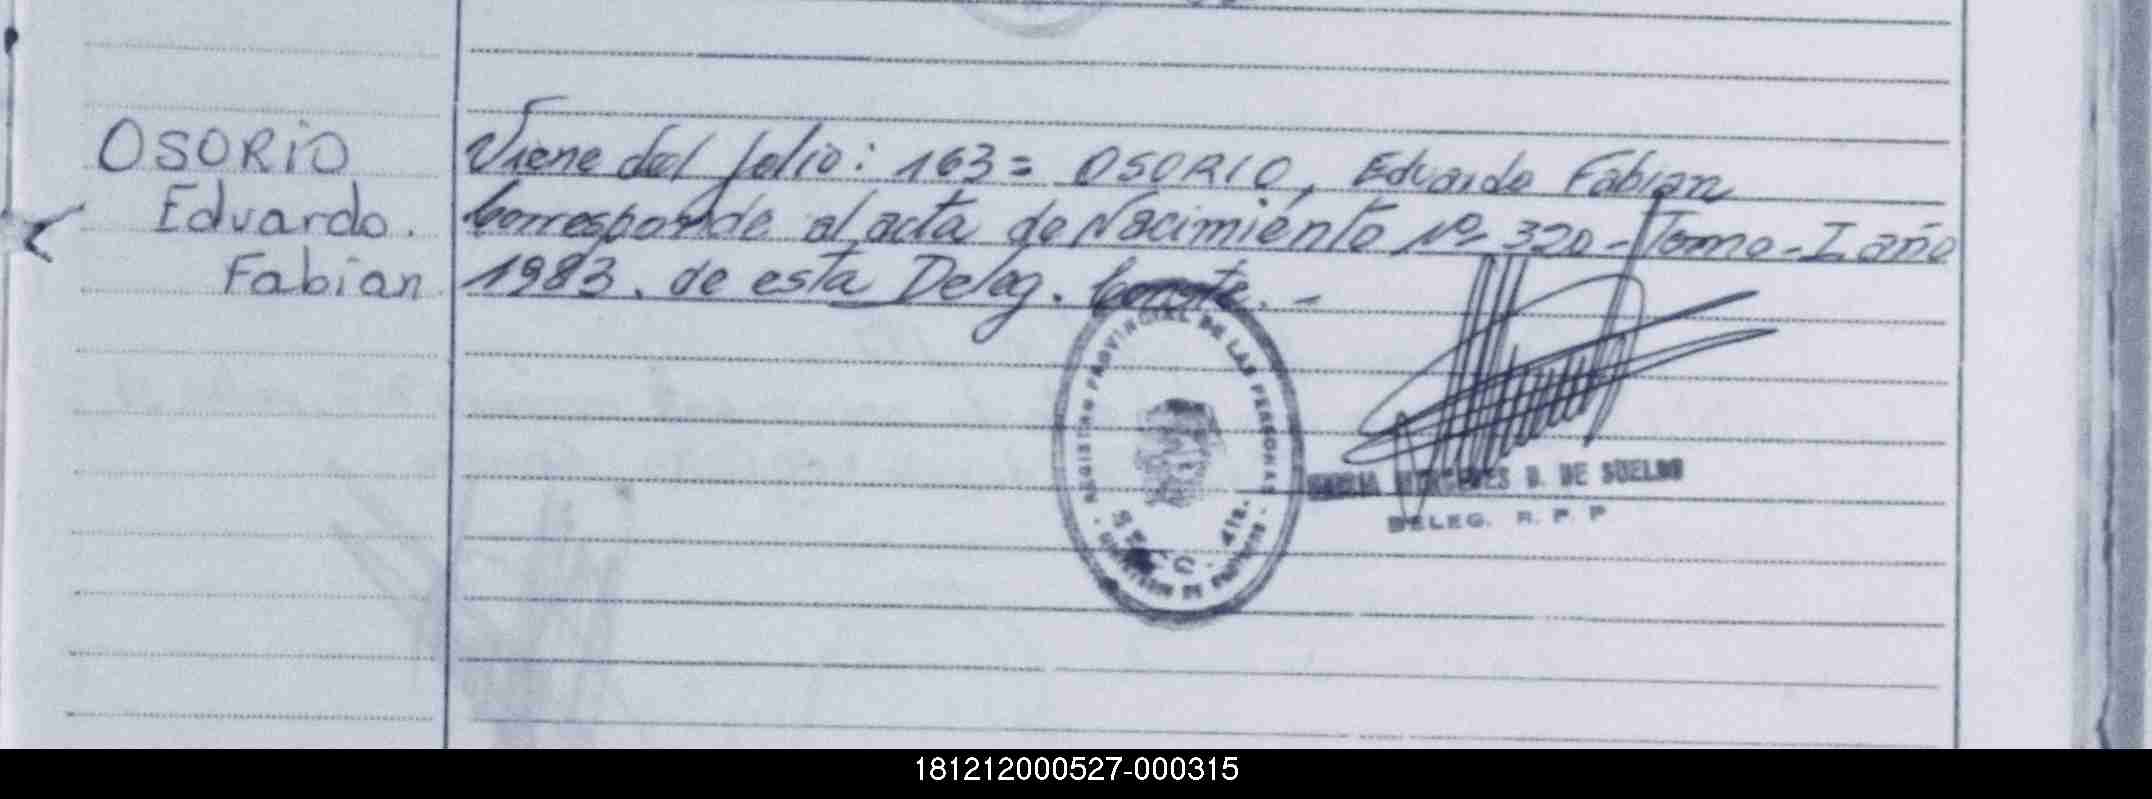 OSORIO
Eduardo.
Fabian
Viene del folio: 163= OSORIO, Eduardo Fabian
Corresponde al acta de Nacimiento Nº 320 - Tomo - I año
1983. de esta Deleg. Conste. -
REGISTRO PROVINCIAL DE LAS PERSONAS
DE
MARIA MERCEDES D. DE SUELDO
DELEG. R. P. P
181212000527-000315